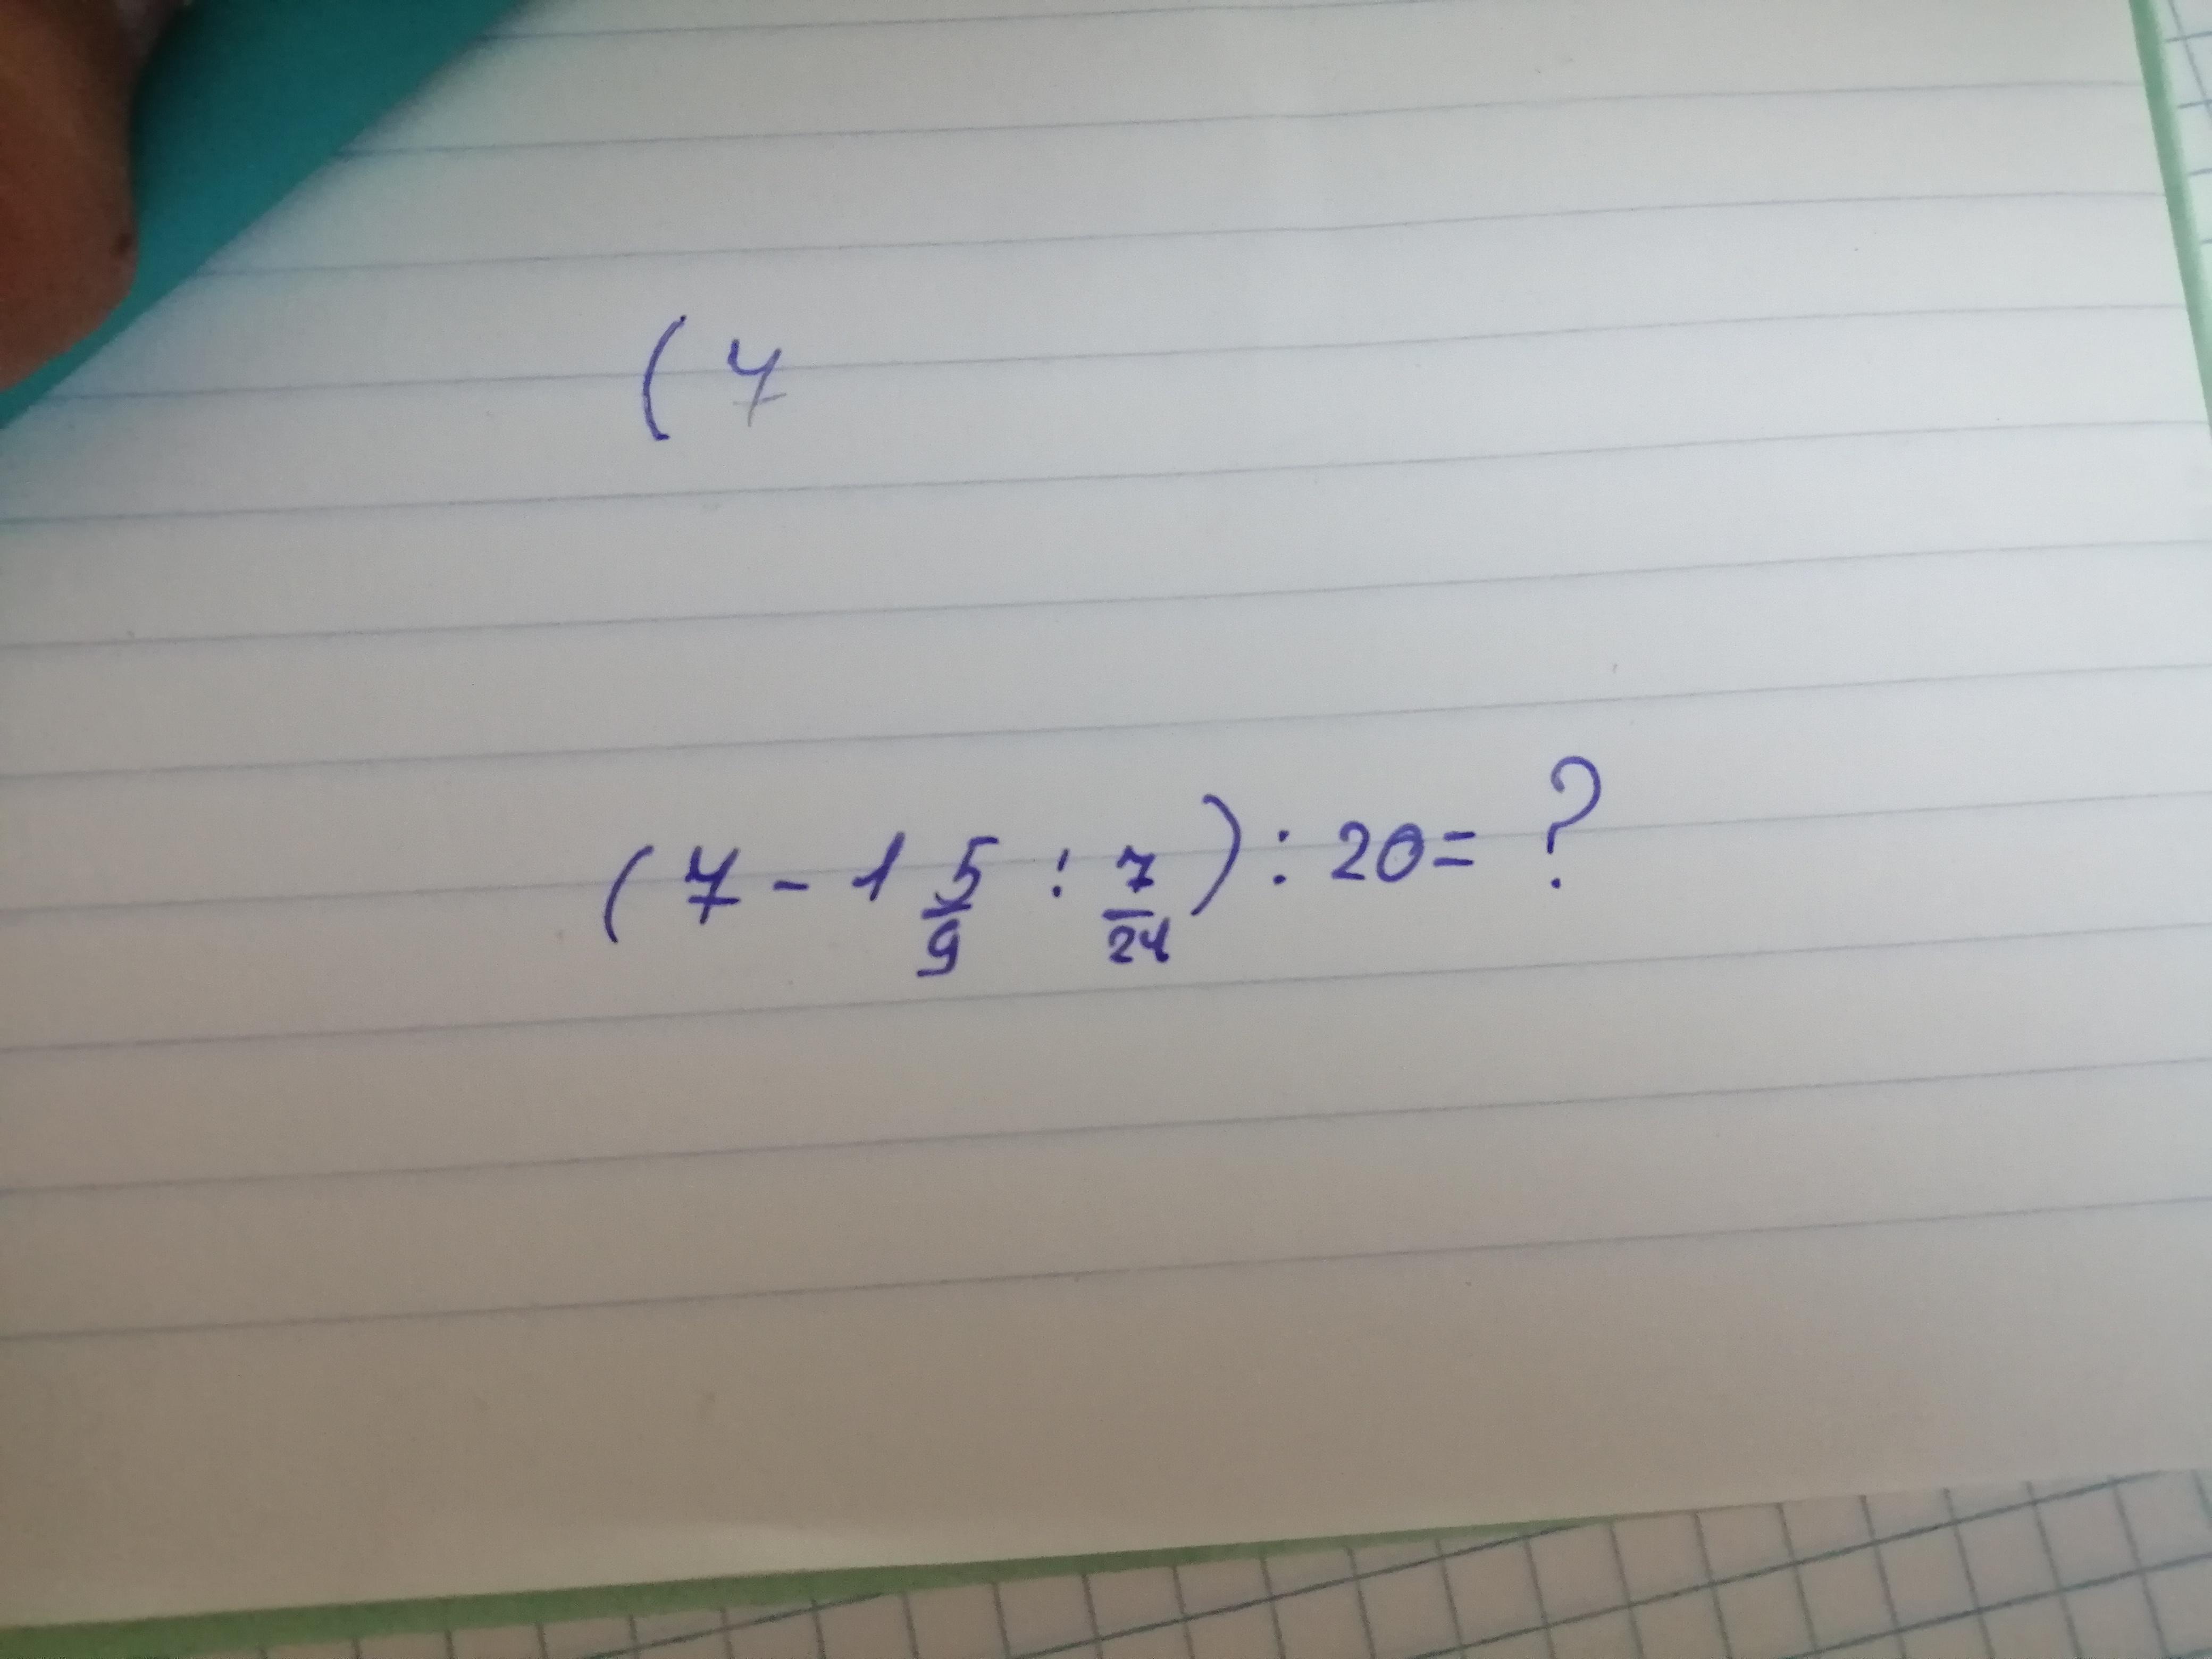 (7
(7 - 1 5/9 : 7/24) : 20 = ?